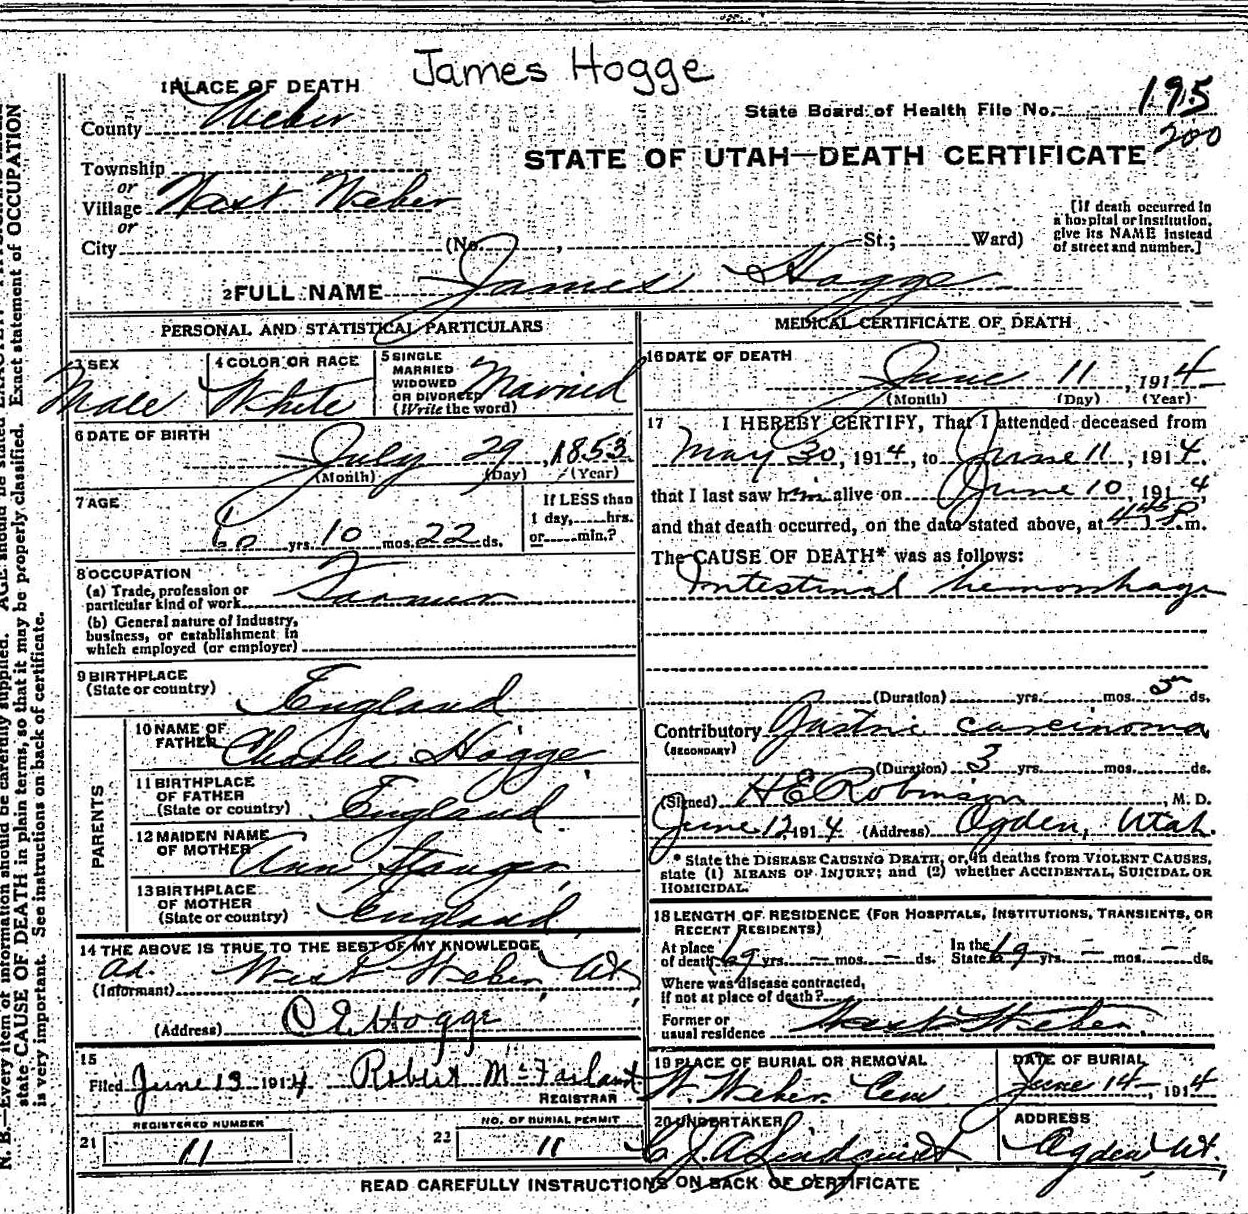 James Hogge
1 PLACE OF DEATH
County Weber
State Board of Health File No. 195
200
STATE OF UTAH—DEATH CERTIFICATE
Township
or
Village West Weber
or
City (No. , St.; Ward)
[If death occurred in
a hospital or institution,
give its NAME instead
of street and number.]
2 FULL NAME James Hogge
PERSONAL AND STATISTICAL PARTICULARS
3 SEX
Male
4 COLOR OR RACE
White
5 SINGLE
MARRIED
WIDOWED
OR DIVORCED
(Write the word)
Married
6 DATE OF BIRTH
July 29, 1853
(Month) (Day) (Year)
7 AGE
60 yrs. 10 mos. 22 ds.
If LESS than
1 day, hrs.
or min.?
8 OCCUPATION
(a) Trade, profession or
particular kind of work Farmer
(b) General nature of industry,
business, or establishment in
which employed (or employer)
9 BIRTHPLACE
(State or country) England
PARENTS
10 NAME OF
FATHER Charles Hogge
11 BIRTHPLACE
OF FATHER
(State or country) England
12 MAIDEN NAME
OF MOTHER Ann Stanger
13 BIRTHPLACE
OF MOTHER
(State or country) England
14 THE ABOVE IS TRUE TO THE BEST OF MY KNOWLEDGE
Ad.
(Informant) West Weber, Ut
(Address) O E Hogge
15
Filed June 13 1914 Robert McFarland
REGISTRAR
REGISTERED NUMBER
21 11
NO. OF BURIAL PERMIT
22 11
MEDICAL CERTIFICATE OF DEATH
16 DATE OF DEATH
June 11, 1914
(Month) (Day) (Year)
17 I HEREBY CERTIFY, That I attended deceased from
May 30, 1914, to June 11, 1914,
that I last saw him alive on June 10, 1914,
and that death occurred, on the date stated above, at 445 P. m.
The CAUSE OF DEATH* was as follows:
Intestinal hemorrhage
(Duration) yrs. mos. ds.
Contributory Gastric carcinoma
(SECONDARY)
(Duration) 3 yrs. mos. ds.
(Signed) H E Robinson, M. D.
June 12, 1914 (Address) Ogden, Utah.
* State the DISEASE CAUSING DEATH, or, in deaths from VIOLENT CAUSES,
state (1) MEANS OF INJURY; and (2) whether ACCIDENTAL, SUICIDAL OR
HOMICIDAL.
18 LENGTH OF RESIDENCE (FOR HOSPITALS, INSTITUTIONS, TRANSIENTS, OR
RECENT RESIDENTS)
At place
of death 69 yrs. – mos. – ds.
In the
State 69 yrs. – mos. – ds.
Where was disease contracted,
if not at place of death?
Former or
usual residence West Weber
19 PLACE OF BURIAL OR REMOVAL
W. Weber Cem
DATE OF BURIAL
June 14–, 1914
20 UNDERTAKER
C. J. A Lindquist
ADDRESS
Ogden Ut.
READ CAREFULLY INSTRUCTIONS ON BACK OF CERTIFICATE
N. B.—Every item of information should be carefully supplied. AGE should be stated
state CAUSE OF DEATH in plain terms, so that it may be properly classified. Exact statement of OCCUPATION
is very important. See instructions on back of certificate.